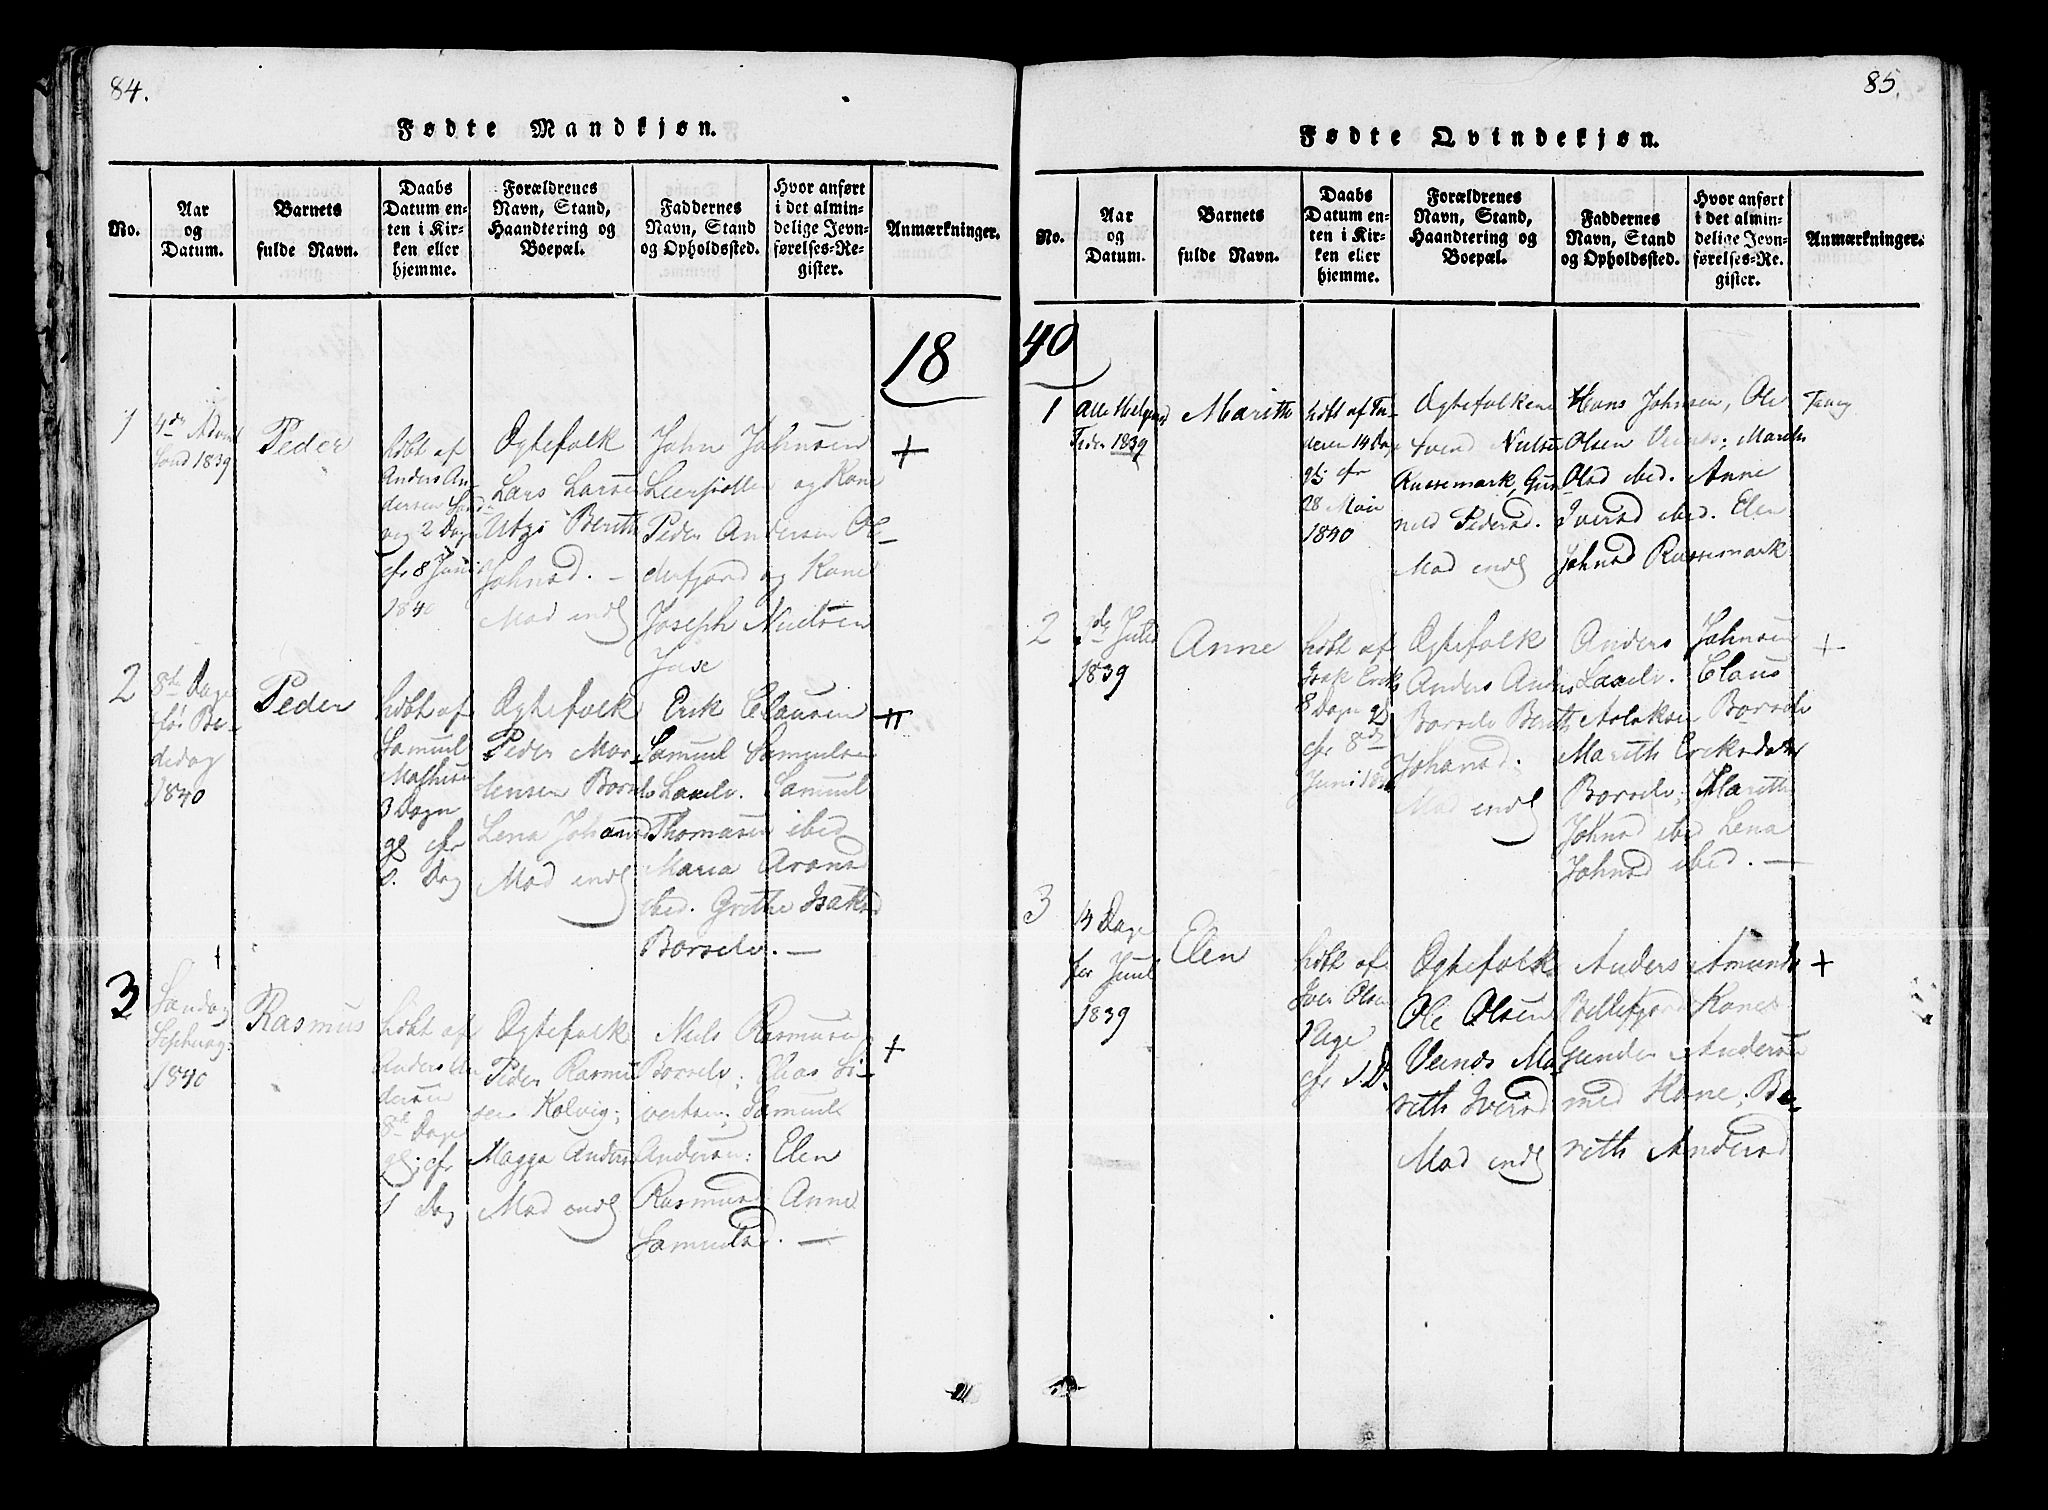 84.
Fødte Mandkjøn.
No.
Aar
og
Datum.
Barnets
fulde Navn.
Daabs
Datum en-
ten i Kir-
ken eller
hjemme.
Forældrenes
Navn, Stand,
Haandtering og
Boepæl.
Faddernes
Navn, Stand
og Opholdssted.
Hvor anført
i det almin-
delige Jevn-
førelses-Re-
gister.
Anmærkninger.
18
1
4de Advent
Sond 1839
Peder
hdbt af
Anders An-
dersen
2 Dage
cfr 8 Juni
1840
Ægtefolk
Lars Larsen
Berith
Johnsd. –
Mod endl
John Johnsen
og Kone
Peder Andersen Ol-
derfjord og Kone
Joseph Nielsen
+
2
8te Dage
før Be-
dedag
1840
Peder
hdbt af
Samuel
Mathisen
3 Dage
gl cfr
s. Dag
Ægtefolk
Peder Mor-
tensen Borselv
Lena Johansd
Mod endl
Erik Clausen
Samuel Samuelsen
Laxelv. Samuel
Thomasen ibed
Maria Aronsd
ibed. Grethe Isaksd
Borselv. —
3
Søndag
Septuag:
1840
Rasmus
hdbt af
Anders An
dersen
8te Dage
gl; cfr
s Dag
Ægtefolk
Peder Rasmu
sen Kolvig;
Magga Anders
Mod endl
Niels Rasmusen
Borselv; Elias Si-
vertsen; Samuel
Andersen; Elen
Rasmusd Anne
Samuelsd. —
+
85.
Fødte Qvindekjøn.
No.
Aar
og
Datum.
Barnets
fulde Navn.
Daabs
Datum en-
ten i Kir-
ken eller
hjemme.
Forældrenes
Navn, Stand,
Haandtering og
Boepæl.
Faddernes
Navn, Stand
og Opholdssted.
Hvor anført
i det almin-
delige Jevn-
førelses-Re-
gister.
Anmærkninger.
40
1
Alle Helgens
Tider 1839
Marith
hdbt af Fa-
deren 14 Dag
gl; cfr
28 Mai
1840
Ægtefolkene
Nielsen
Russemark, Gun
nild Pedersd.
Mod endl
Hans Johnsen, Ole
Olsen Veines; Marith
Olsd ibed. Anne
Iversd ibed. Elen
Johnsd Russemark
2
Juled
1839
Anne
hdbt af
Isak Eriks
8 Dage gl
cfr 8de
Juni 1840
Ægtefolk
Anders Anders
Borselv Berith
Johansd.
Mod endl
Anders Johnsen
Laxelv. Claus
Aslaksen Borselv
Marith Eriksdatter
Borselv; Marith
Johnsd ibed Lena
Johnsd ibed. —
+
3
14 Dage
før Juul
1839
Elen
hdbt af
Iver Olsen
1 Uge
cfr s. D.
Ægtefolk
Ole Olsen
Veines Ma-
rith Iversd
Mod endl
Anders Amunds
Billefjord Kone
Gunder Andersen
med Kone, Be-
rith Andersd
+